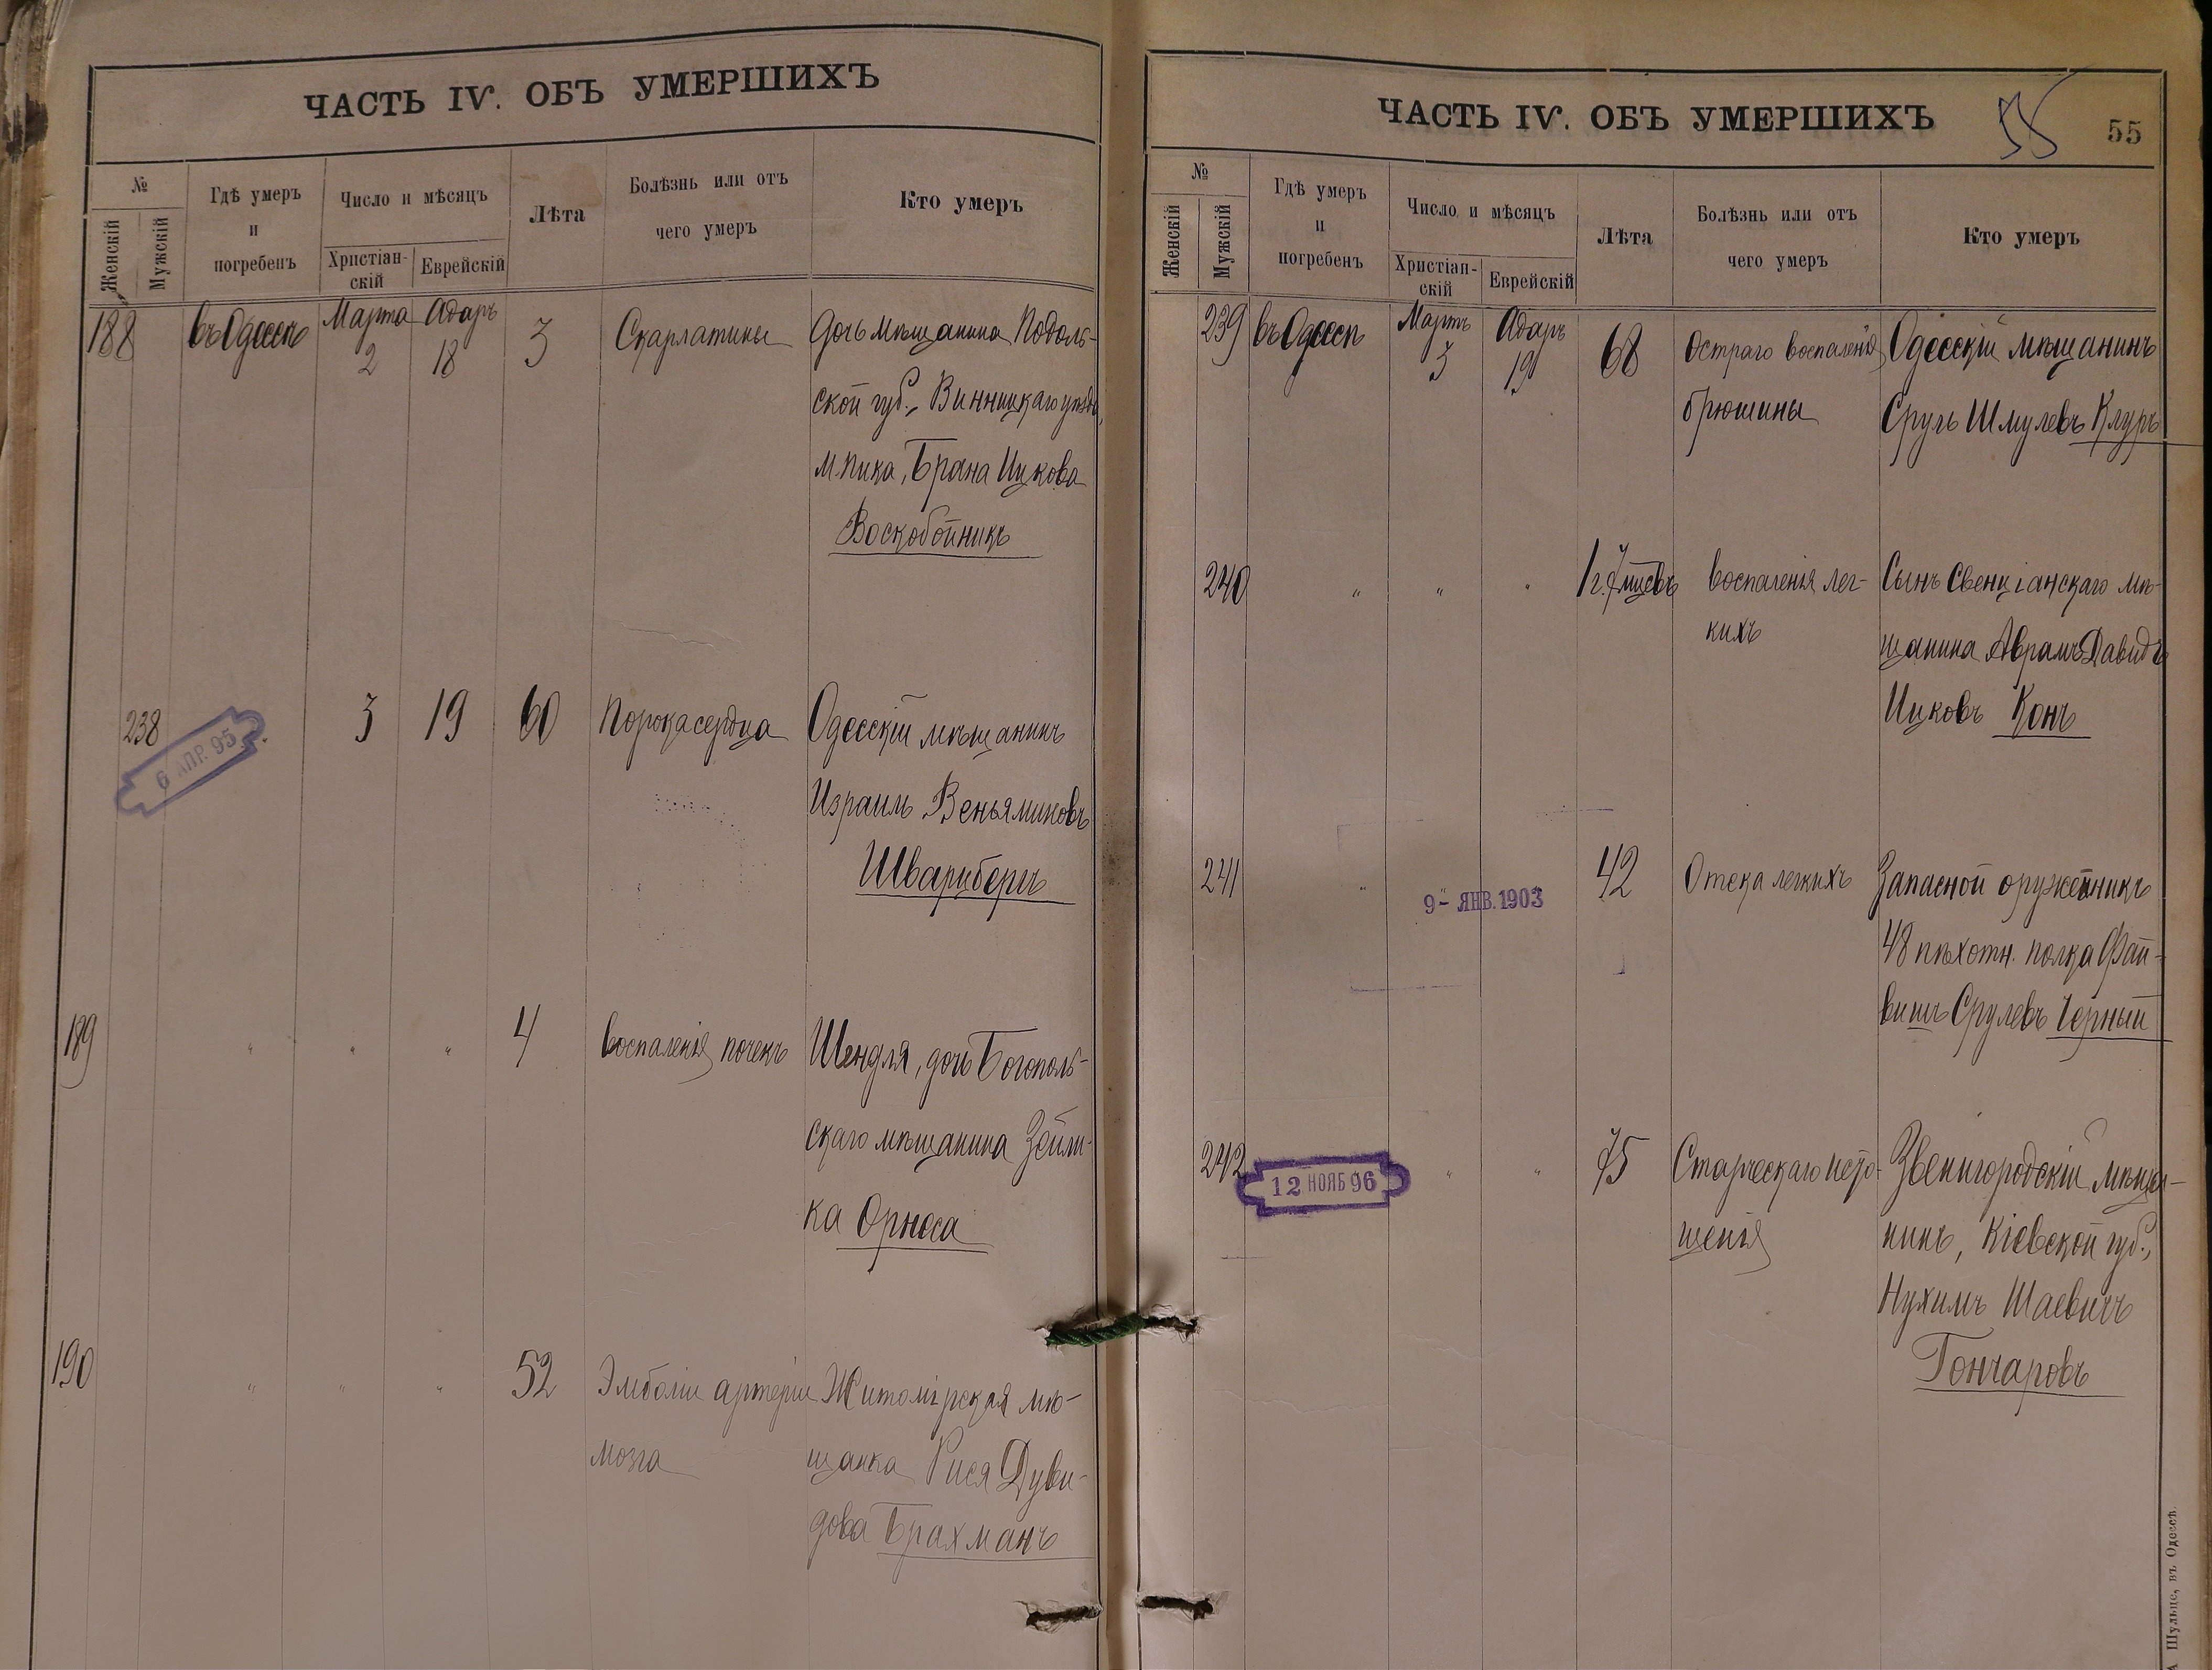 ЧАСТЬ IV. ОБЪ УМЕРШИХЪ
№
Женскій
Мужскій
Гдѣ умеръ
и
погребенъ
Число и мѣсяцъ
Христіан-
скій
Еврейскій
Лѣта
Болѣзнь или отъ
чего умеръ
Кто умеръ
188 въ Одессѣ Марта 2 Адаръ 18 3 Скарлатины Дочь мѣщанина Подоль-
ской губ., Винницкаго уѣзда,
м. Пика, Брана Ицкова
Воскобойникъ
238 3 19 60 Порока сердца Одесскій мѣщанинъ
6 АПР. 95
Израиль Веньяминовъ
Шварцбергъ
189 " " " 4 воспаленія почекъ Шендля, дочь Богополь-
скаго мѣщанина Зейли-
ка Орноса
190 " " " 52 Эмболіи артеріи Житомірская мѣ-
мозга щанка Рися Дуви-
дова Брахманъ
ЧАСТЬ IV. ОБЪ УМЕРШИХЪ
55 55
№
Женскій
Мужскій
Гдѣ умеръ
и
погребенъ
Число и мѣсяцъ
Христіан-
скій
Еврейскій
Лѣта
Болѣзнь или отъ
чего умеръ
Кто умеръ
239 въ Одессѣ Мартъ 3 Адаръ 19 68 Остраго воспаленія Одесскій мѣщанинъ
брюшины Сруль Шмулевъ Клуръ
240 " " " 1 г. 7 мцевъ воспаленія лег- Сынъ Свенціанскаго мѣ-
кихъ щанина Аврамъ Давидъ
Ицковъ Конъ
241 " " " 42 Отека легкихъ Запасной оружейникъ
9 - ЯНВ. 1903
48 пѣхотн. полка Фай-
вишъ Срулевъ Черный
242 " " 75 Старческаго исто- Звенигородскій мѣща-
12 НОЯБ 96
щенія нинъ, Кіевской губ.,
Нухимъ Шаевичъ
Гончаровъ
А Шульце, въ Одессѣ.